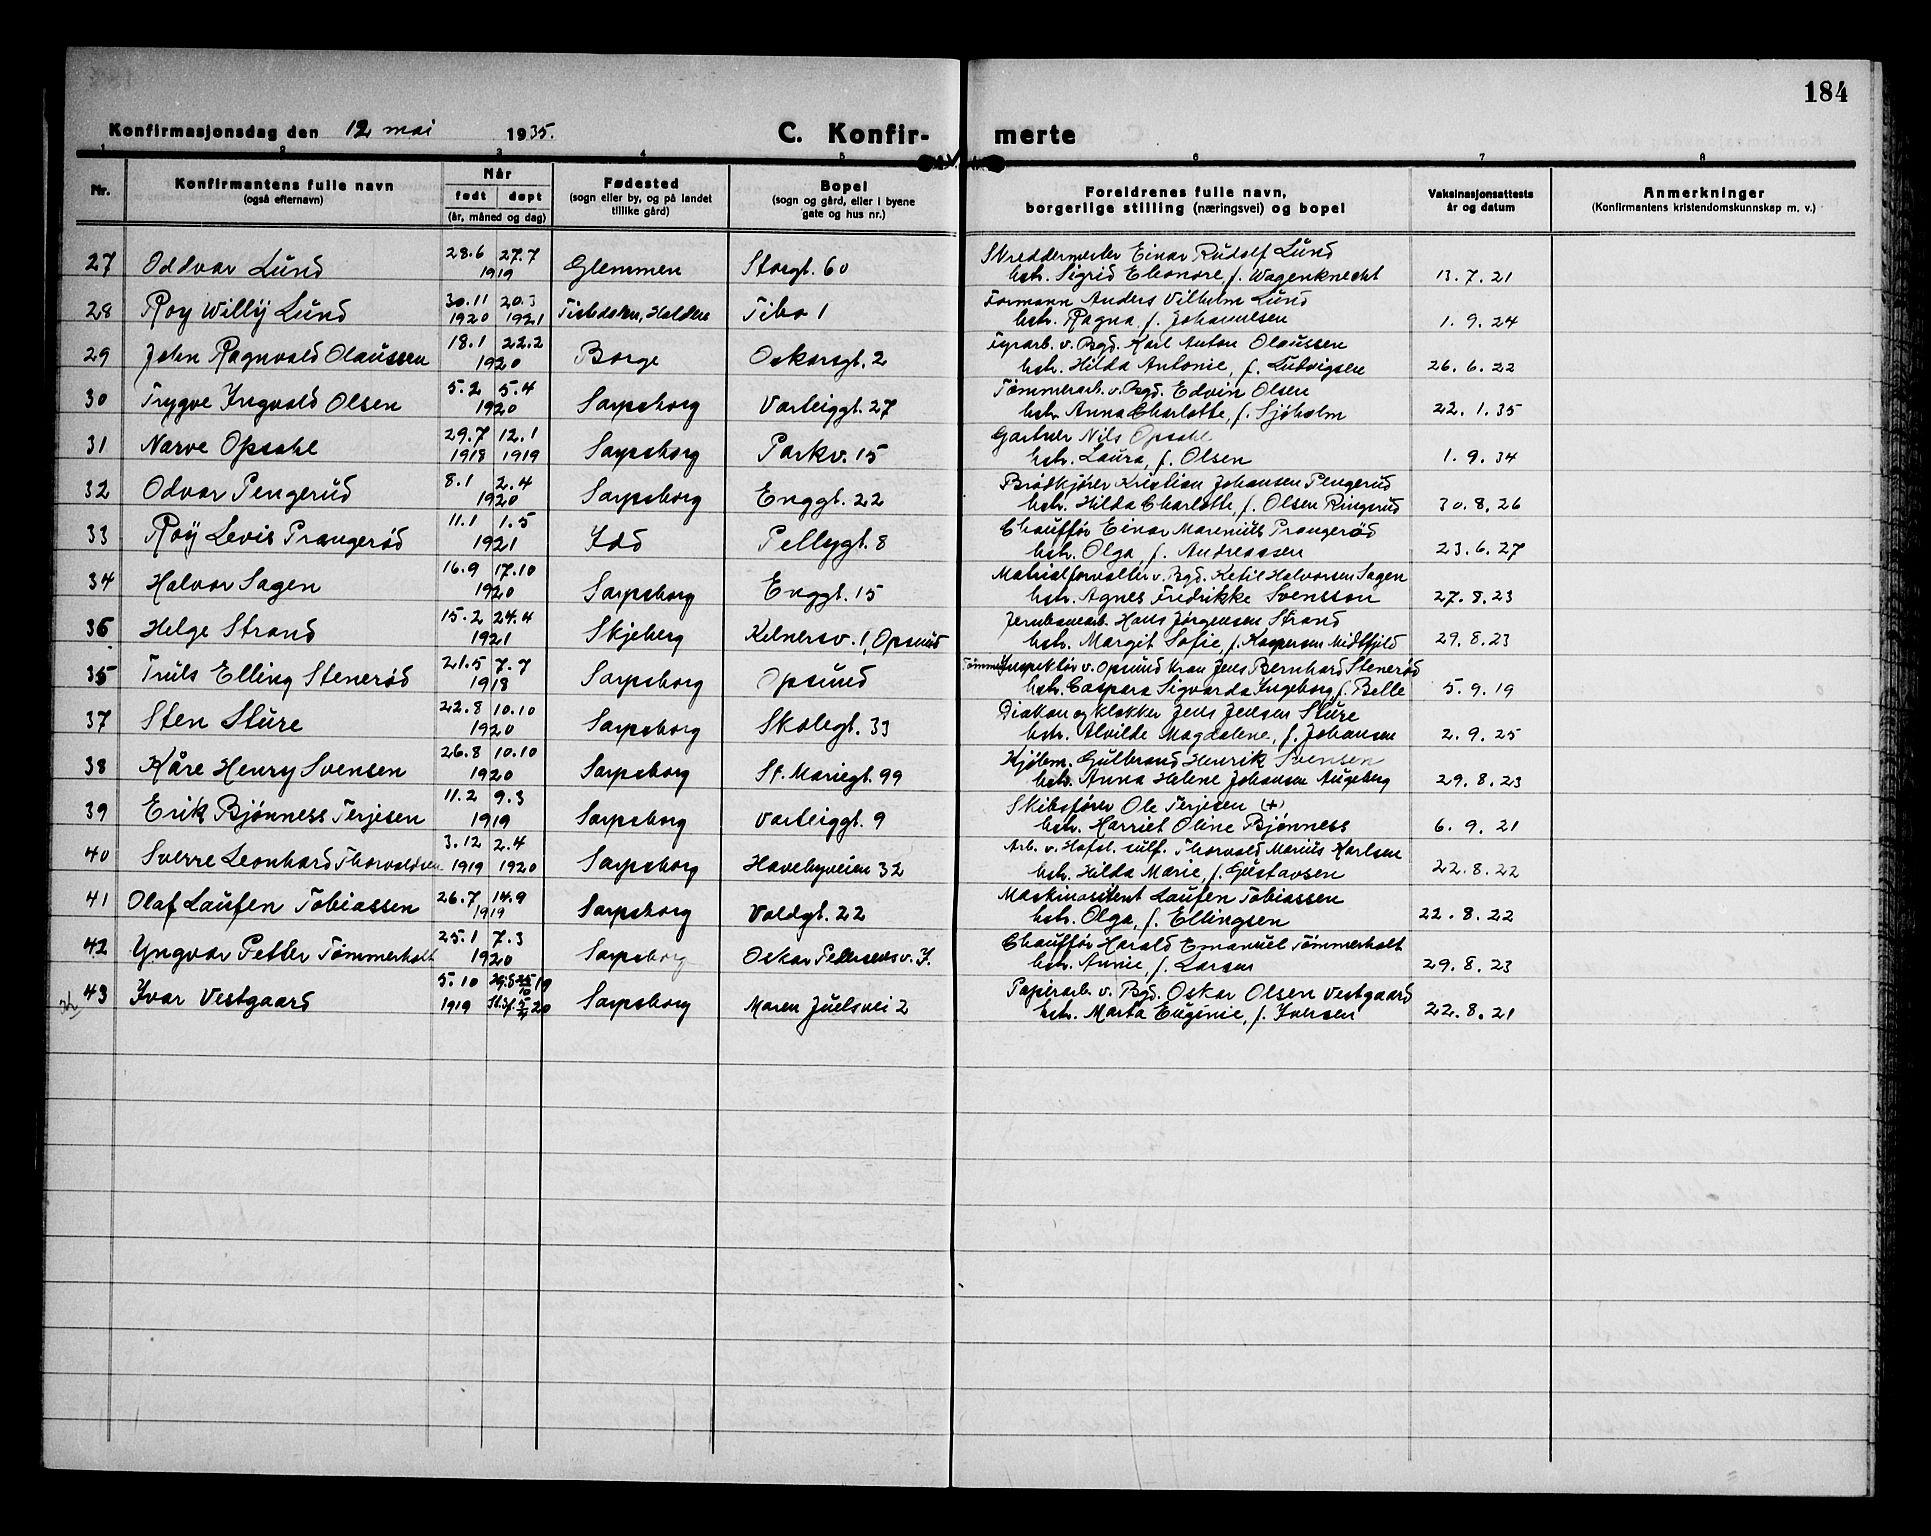 184
Konfirmasjonsdag den 12 mai 1935. C. Konfir- merte
1 2 3 4 5 6 7 8
Nr. Konfirmantens fulle navn (også efternavn) Når født døpt (år, måned og dag) Fødested (sogn eller by, og på landet tillike gård) Bopel (sogn og gård, eller i byene gate og hus nr.) Foreldrenes fulle navn, borgerlige stilling (næringsvei) og bopel Vaksinasjonsattests år og datum Anmerkninger (Konfirmantens kristendomskunnskap m. v.)
27 Oddvar Lund 28.6 27.7 1919 Glemmen Storgt. 60 Skreddermester Einar Rudolf Lund
hstr. Sigrid Eleonore f. Wagenknecht 13.7.21
28 Roy Willy Lund 30.11 1920 20.3 1921 Tistedalen, Halden Tibo 1 Formann Anders Vilhelm Lund
hstr. Ragna f. Johannesen 1.9.24
29 John Ragnvald Olaussen 18.1 22.2 1920 Borge Oskarsgt. 2 Fyrarb. v. Bgd. Karl Anton Olaussen
hstr. Hilda Antonie, f. Ludvigsen 26.6.22
30 Trygve Yngvald Olsen 5.2 5.4 1920 Sarpsborg Varteiggt. 27 Tømmerarb. v. Bgd. Edvin Olsen
hstr. Anna Charlotte, f. Sjøholm 22.1.35
31 Narve Opsahl 29.7 1918 12.1 1919 Sarpsborg Parkv. 15 Gartner Nils Opsahl
hstr. Laura, f. Olsen 1.9.34
32 Odvar Pengerud 8.1 2.4 1920 Sarpsborg Enggt. 22 Brødkjører Kristian Johansen Pengerud
hstr. Hilda Charlotte, f. Olsen Ringerud 30.8.26
33 Roy Levis Prangerød 11.1 1.5 1921 Idd Pellygt. 8 Chauffør Einar Marenius Prangerød
hstr. Olga f. Andreassen 23.6.27
34 Halvor Sagen 16.9 17.10 1920 Sarpsborg Enggt. 15 Matrialforvalter v. Bgd. Ketil Halvorsen Sagen
hstr. Agnes Fredrikke Svensson 27.8.23
36 Helge Strand 15.2 24.4 1921 Skjeberg Kelnersv. 1, Opsund Jernbanearb. Hans Jørgensen Strand
hstr. Margit Sofie, f. Kaspersen Midtfjeld 29.8.23
35 Truls Elling Stenerød 21.5 7.7 1918 Sarpsborg Opsund Tømmerinspektør v. Opsund Kran Jens Bernhard Stenerød
hstr. Caspara Sigvarda Ingeborg, f. Belle 5.9.19
37 Sten Sture 22.8 10.10 1920 Sarpsborg Skolegt. 33 Diakon og klokker Jens Jensen Sture
hstr. Alvilde Magdalene, f. Johansen 2.9.25
38 Kåre Henry Svensen 26.8 10.10 1920 Sarpsborg St. Mariegt. 99 Kjøbm. Gulbrand Henrik Svensen
hstr. Anna Helene Johansen Augeberg 29.8.23
39 Erik Bjønness Terjesen 11.2 9.3 1919 Sarpsborg Varteiggt. 9 Skibsfører Ole Terjesen (+)
hstr. Harriet Oline Bjønness 6.9.21
40 Sverre Leonhard Thorvaldsen 3.12 1919 2.4 1920 Sarpsborg Havebyveien 32 Arb. v. Hafsl. sulf. Thorvald Marius Karlsen
hstr. Hilda Marie, f. Gustavsen 22.8.22
41 Olaf Laufen Tobiassen 26.7 14.9 1919 Sarpsborg Voldgt. 22 Maskinassistent Laufen Tobiassen
hstr. Olga, f. Ellingsen 22.8.22
42 Yngvar Petter Tømmerholt 25.1 7.3 1920 Sarpsborg Oskar Pedersens v. Chauffør Harald Emanuel Tømmerholt
hstr. Annie, f. Larsen 29.8.23
43 Ivar Vestgaard 5.10 1919 Sarpsborg Maren Juelsvei 2 Papirarb. v. Bgd. Oskar Olsen Vestgaard
hstr. Marta Eugenie, f. Iversen 22.8.21